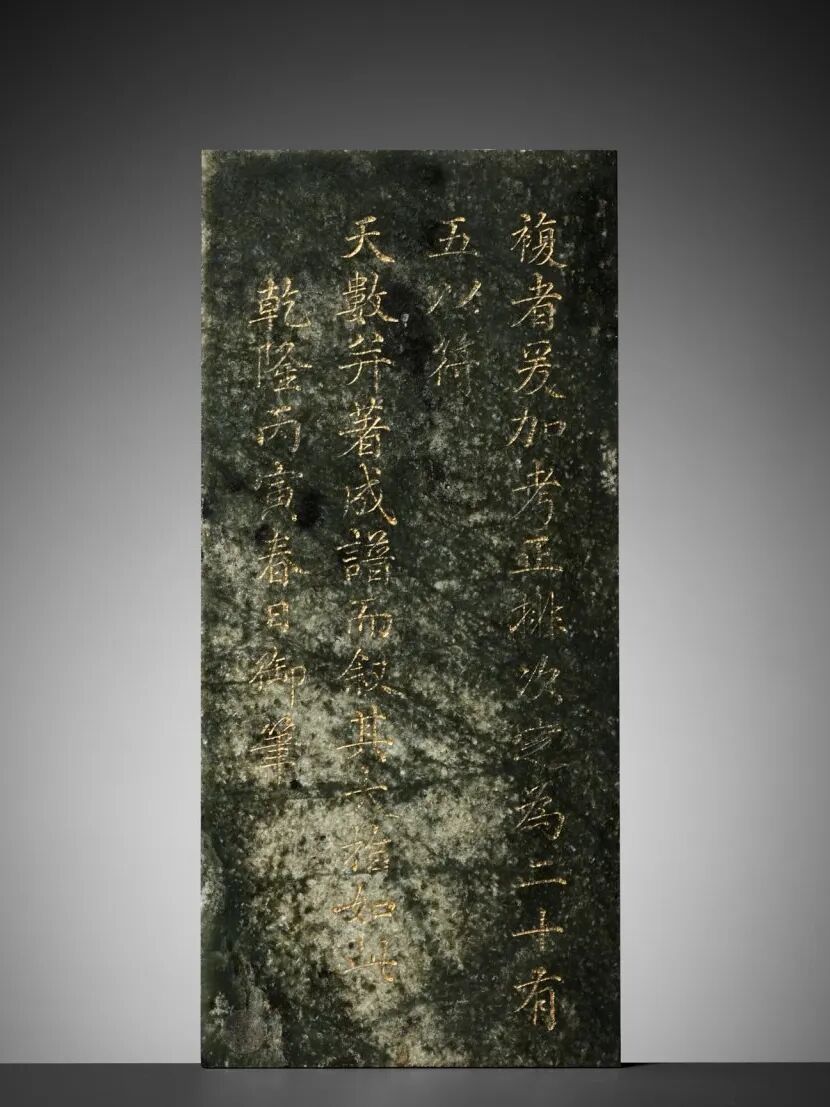 複者爰加考正排次定為二十有
五以符
天數并著成譜而敘其大指如此
乾隆丙寅春日御筆